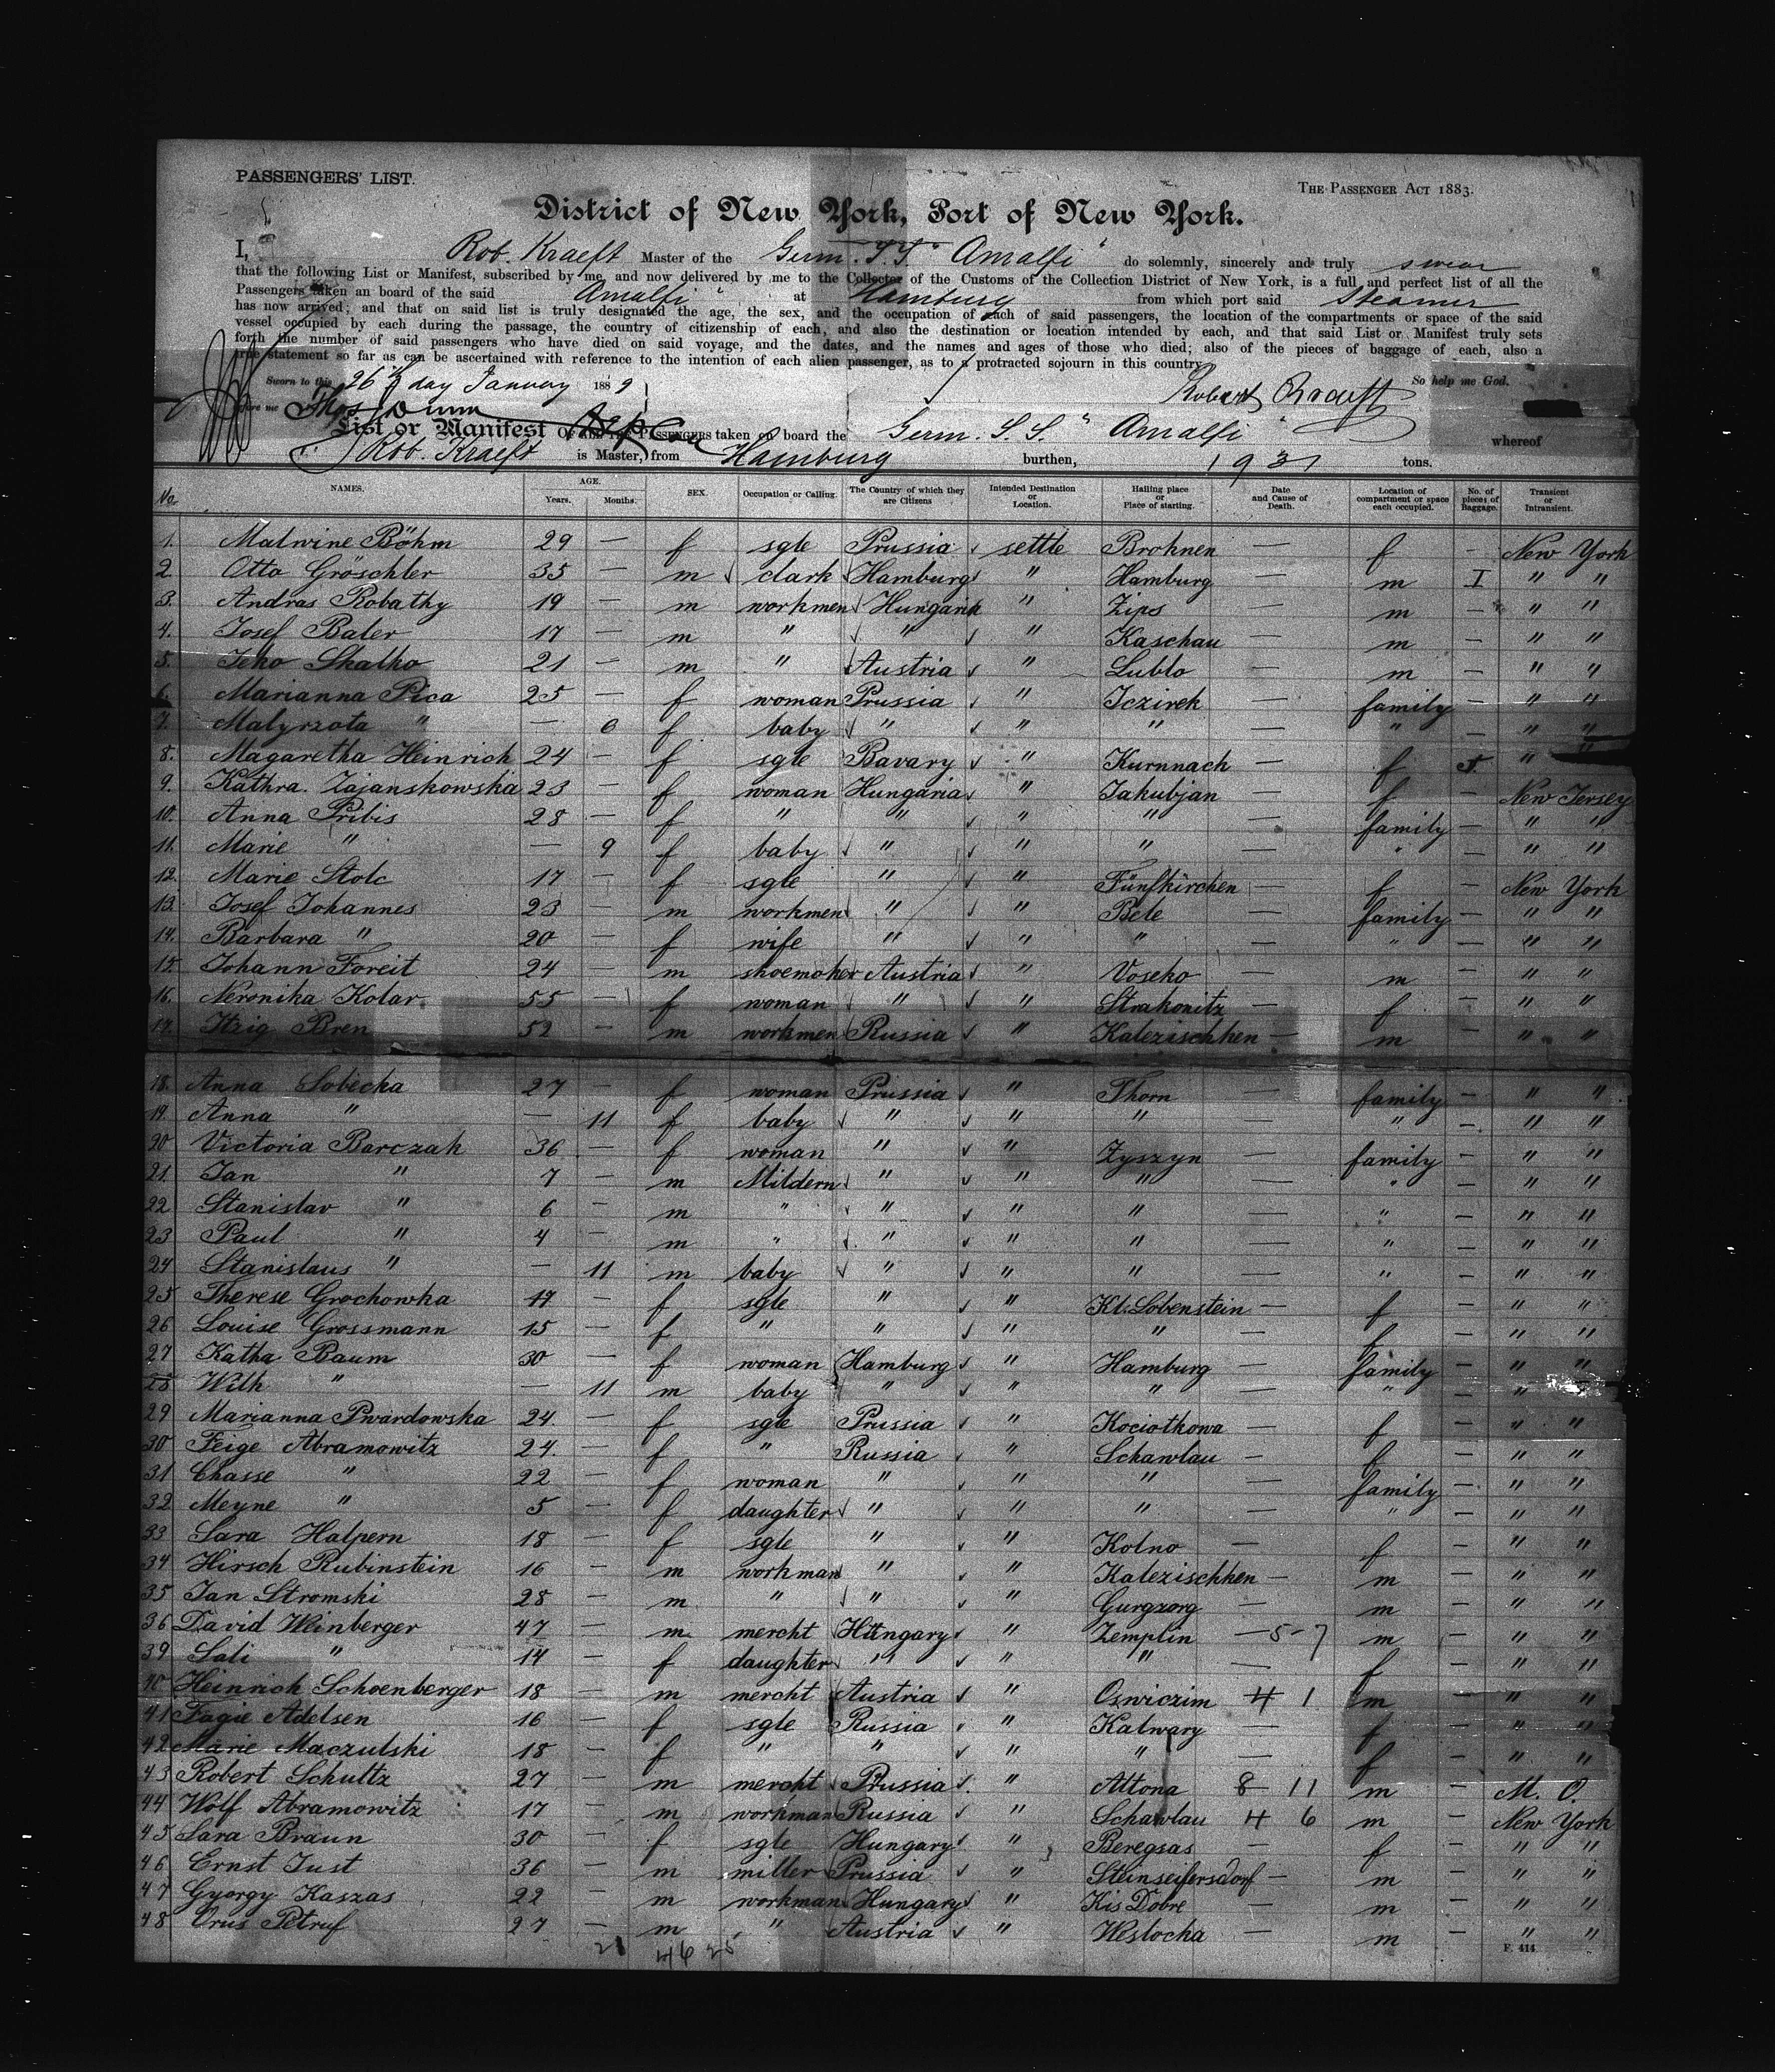 PASSENGERS' LIST.
THE PASSENGER ACT 1883.
District of New York, Port of New York.
I, Rob. Kraeft Master of the Germ. S.S. "Amalfi" do solemnly, sincerely and truly swear
that the following List or Manifest, subscribed by me, and now delivered by me to the Collector of the Customs of the Collection District of New York, is a full and perfect list of all the
Passengers taken an board of the said "Amalfi" at Hamburg from which port said Steamer
has now arrived; and that on said list is truly designated the age, the sex, and the occupation of each of said passengers, the location of the compartments or space of the said
vessel occupied by each during the passage, the country of citizenship of each, and also the destination or location intended by each, and that said List or Manifest truly sets
forth the number of said passengers who have died on said voyage, and the dates, and the names and ages of those who died; also of the pieces of baggage of each, also a
true statement so far as can be ascertained with reference to the intention of each alien passenger, as to a protracted sojourn in this country.
Sworn to this 26th day January 1889 So help me God.
before me Thos Dunn Robert Kraeft
List or Manifest OF ALL THE PASSENGERS taken on board the Germ. S.S. "Amalfi" whereof
Rob. Kraeft is Master, from Hamburg burthen, 1931 tons.
No. NAMES. AGE. Years. Months. SEX. Occupation or Calling. The Country of which they are Citizens Intended Destination or Location. Hailing place or Place of starting. Date and Cause of Death. Location of compartment or space each occupied. No. of pieces of Baggage. Transient or Intransient.
1. Malwine Böhm 29 — f sgle Prussia settle Brohnen — f — New York
2. Otto Gröschler 35 — m clark Hamburg " Hamburg — m I " "
3. Andras Robathy 19 — m workmen Hungaria " Zips — m — " "
4. Josef Baler 17 — m " " " Kaschau — m — " "
5. Jeho Skalko 21 — m " Austria " Lublo — m — " "
6. Marianna Pica 25 — f woman Prussia " Iczirek — family — " "
7. Malyrzota " — 6 f baby " " " — " — " "
8. Magaretha Heinrich 24 — f sgle Bavary " Kurnnach — f " "
9. Kathra. Zajanskowska 23 — f woman Hungaria " Jakubjan — f — New Jersey
10. Anna Pribis 28 — f " " " " — family — " "
11. Marie " — 9 f baby " " " — " — " "
12. Marie Stolc 17 — f sgle " " Fünfkirchen — f — New York
13. Josef Johannes 23 — m workmen " " Bele — family — " "
14. Barbara " 20 — f wife " " " — " — " "
15. Johann Foreit 24 — m shoemoker Austria " Voseko — m — " "
16. Neronika Kolar 55 — f woman " " Strakonitz — f — " "
17. Itzig Bren 52 — m workmen Russia " Kalezischken — m — " "
18. Anna Sobecka 27 — f woman Prussia " Thorn — family — " "
19. Anna " — 11 f baby " " " — " — " "
20 Victoria Barczak 36 — f woman " " Zyszyn — family — " "
21. Jan " 7 — m Mildern " " " — " — " "
22 Stanislav " 6 — m " " " " — " — " "
23 Paul " 4 — m " " " " — " — " "
24 Stanislaus " — 11 m baby " " " — " — " "
25 Therese Grochowka 17 — f sgle " " Kl. Lobenstein — f — " "
26 Louise Grossmann 15 — f " " " " — f — " "
27 Katha Baum 30 — f woman Hamburg " Hamburg — family — " "
28 Wilh " — 11 m baby " " " — " — " "
29 Marianna Pwardowska 24 — f sgle Prussia " Kociotkowa — f — " "
30 Feige Abramowitz 24 — f " Russia " Schawlau — f — " "
31 Chasse " 22 — f woman " " " — family — " "
32 Meyne " 5 — f daughter " " " — " — " "
33 Sara Halpern 18 — f sgle " " Kolno — f — " "
34 Hirsch Rubinstein 16 — m workman " " Kalezischken — m — " "
35 Jan Stromski 28 — m " " " Gurgzorg — m — " "
36 David Weinberger 47 — m mercht Hungary " Zemplin — 5-7 m — " "
39 Sali " 14 — f daughter " " " — f — " "
40 Heinrich Schoenberger 18 — m mercht Austria " Oswiczim 4 1 m — " "
41 Fagie Adelsen 16 — f sgle Russia " Kalwary — f — " "
42 Marie Maczulski 18 — f " " " " — f — " "
43 Robert Schultz 27 — m mercht Prussia " Altona 8 11 m — M. O.
44 Wolf Abramowitz 17 — m workman Russia " Schawlau 4 6 m — New York
45 Sara Braun 30 — f sgle Hungary " Beregsas — f — " "
46 Ernst Just 36 — m miller Prussia " Steinseifersdorf — m — " "
47 Gyorgy Kaszas 22 — m workman Hungary " Kis Dobre — m — " "
48 Orus Petruf 27 — m " Austria " Weslocha — m — " "
21 46 25
F. 414